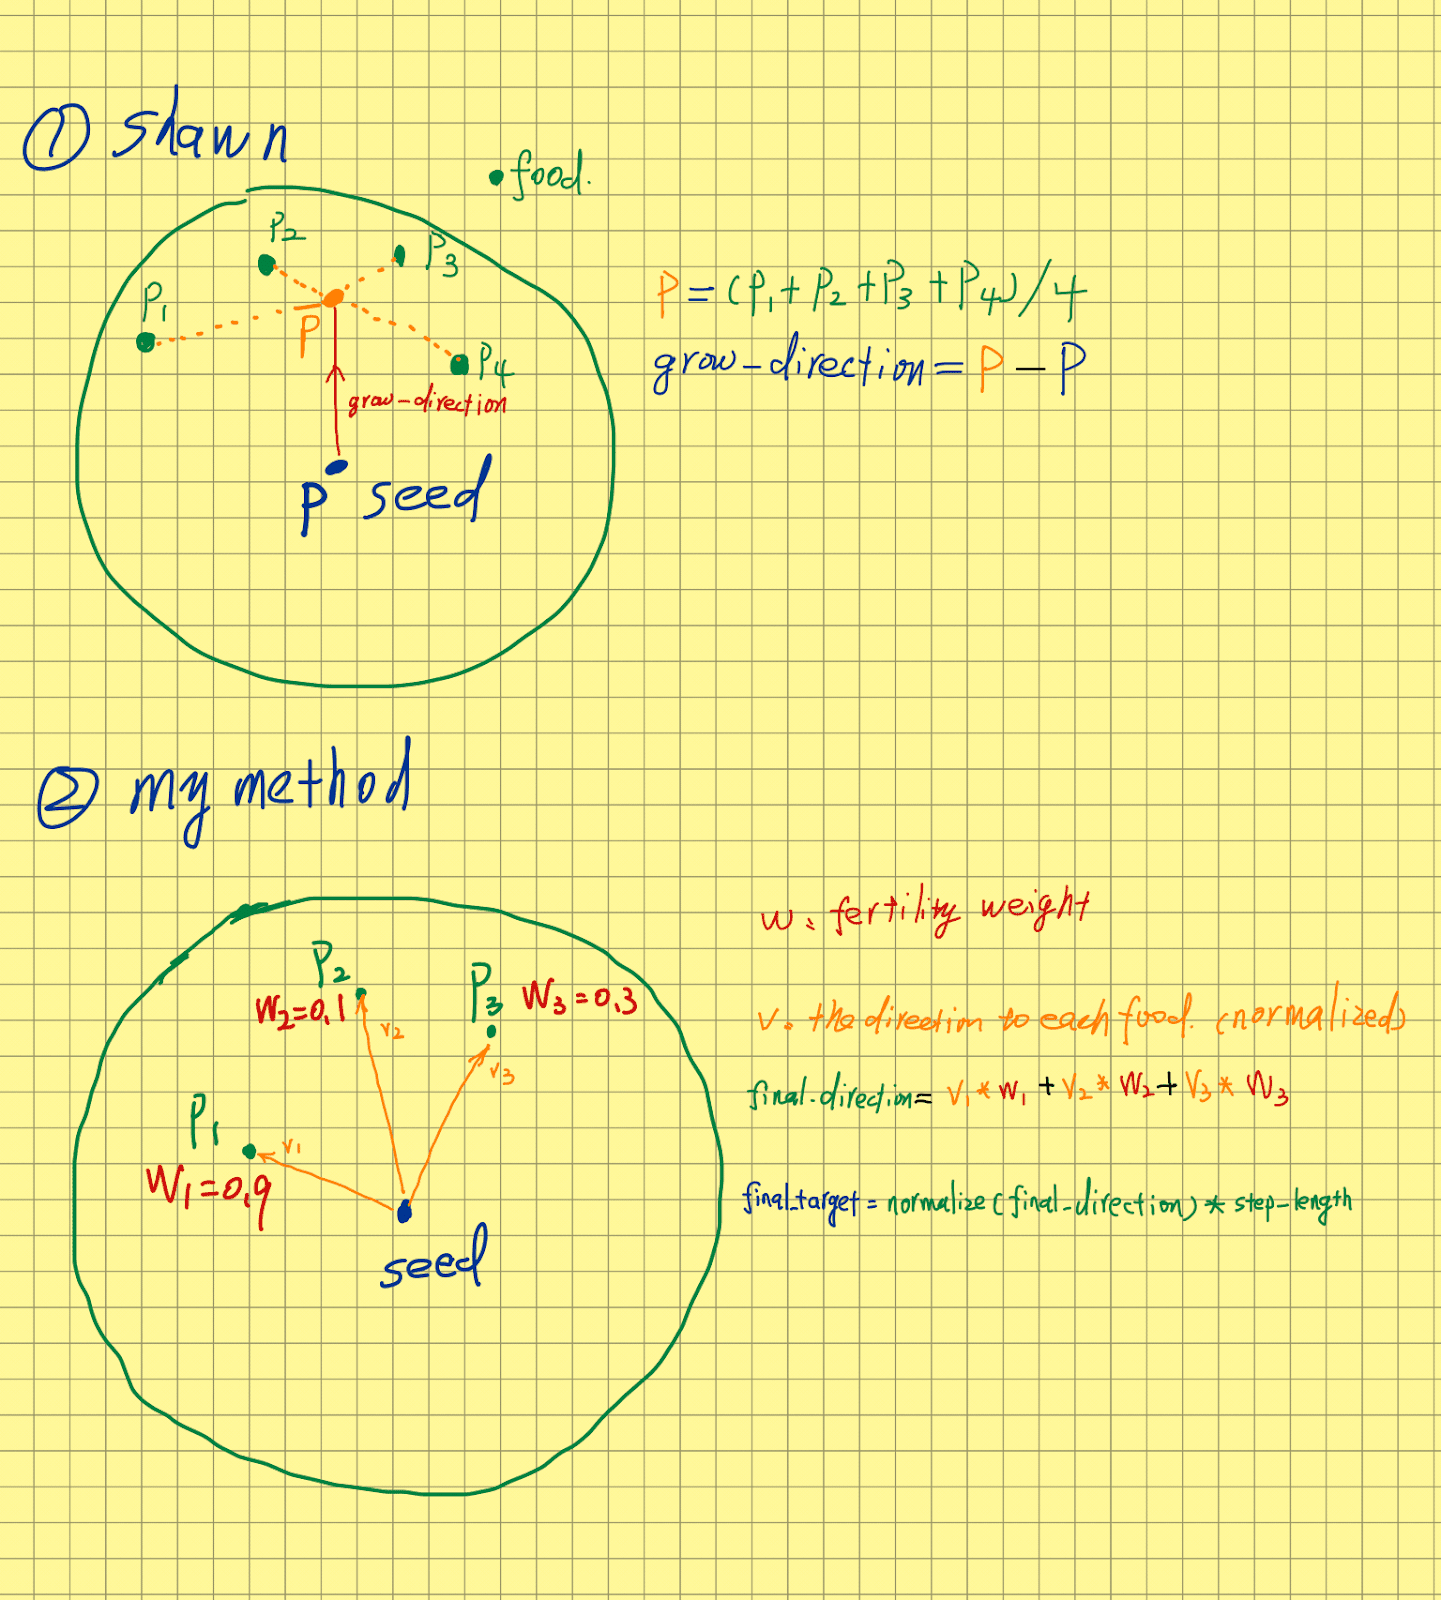 ① shawn
food.
P2
P3
P1
P
P4
grow-direction
P seed
P = (P1 + P2 + P3 + P4) / 4
grow-direction = P - P
② my method
P2
W2=0.1
v2
P3
W3=0.3
v3
P1
v1
W1=0.9
seed
w: fertility weight
v: the direction to each food. (normalized)
final-direction= V1 * W1 + V2 * W2 + V3 * W3
final_target = normalize (final-direction) * step-length